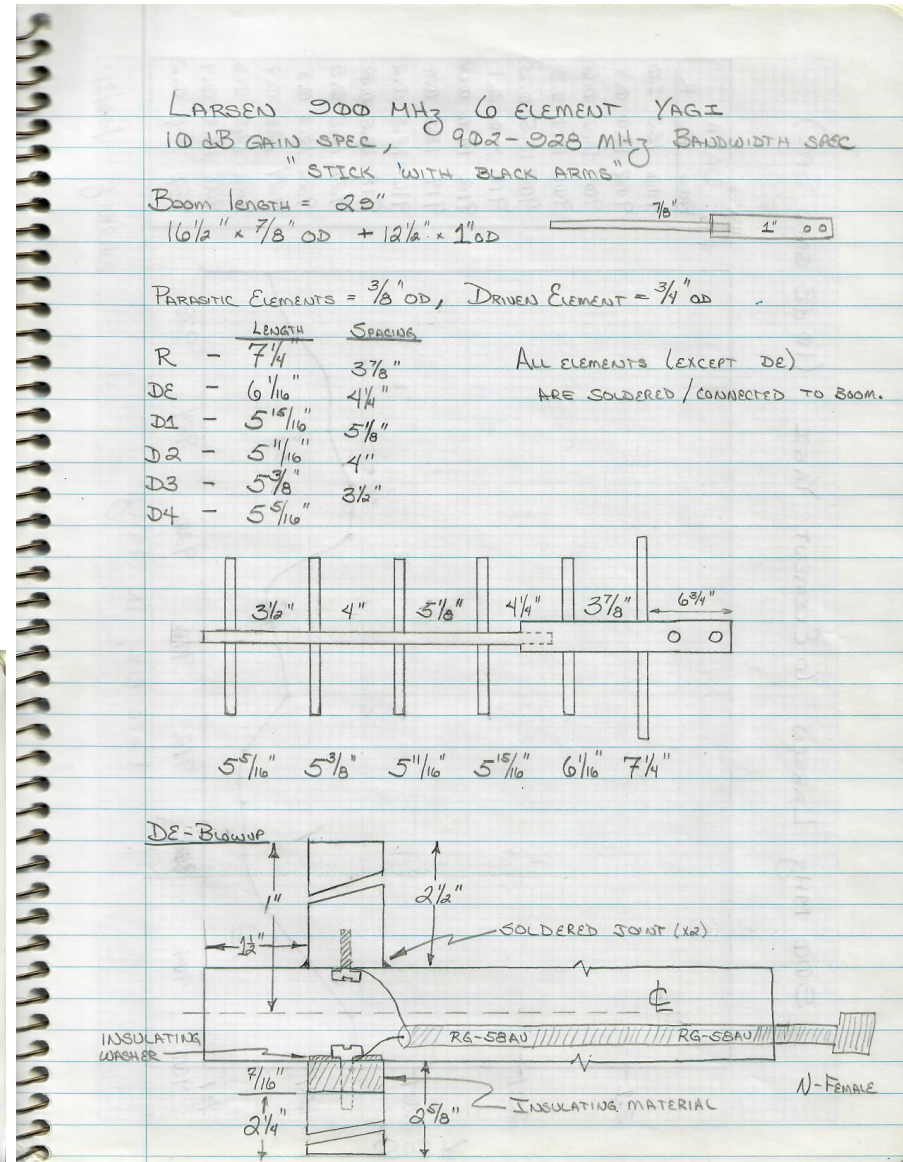 LARSEN 900 MHz 6 ELEMENT YAGI
10 dB GAIN SPEC, 902-928 MHz BANDWIDTH SPEC
"STICK WITH BLACK ARMS"
BOOM LENGTH = 29"
16 1/2" x 7/8" OD + 12 1/2" x 1" OD
7/8"
1"
PARASITIC ELEMENTS = 3/8" OD, DRIVEN ELEMENT = 3/4" OD
LENGTH SPACING
R - 7 1/4"
3 7/8"
DE - 6 1/16"
4 1/4"
D1 - 5 15/16"
5 1/8"
D2 - 5 11/16"
4"
D3 - 5 3/8"
3 1/2"
D4 - 5 5/16"
ALL ELEMENTS (EXCEPT DE)
ARE SOLDERED / CONNECTED TO BOOM.
3 1/2" 4" 5 1/8" 4 1/4" 3 7/8" 6 3/4"
5 5/16" 5 3/8" 5 11/16" 5 15/16" 6 1/16" 7 1/4"
DE-BLOWUP
1"
2 1/2"
1 1/2"
SOLDERED JOINT (x2)
℄
RG-58AU RG-58AU
INSULATING
WASHER
N-FEMALE
7/16"
2 1/4"
2 5/8"
INSULATING MATERIAL